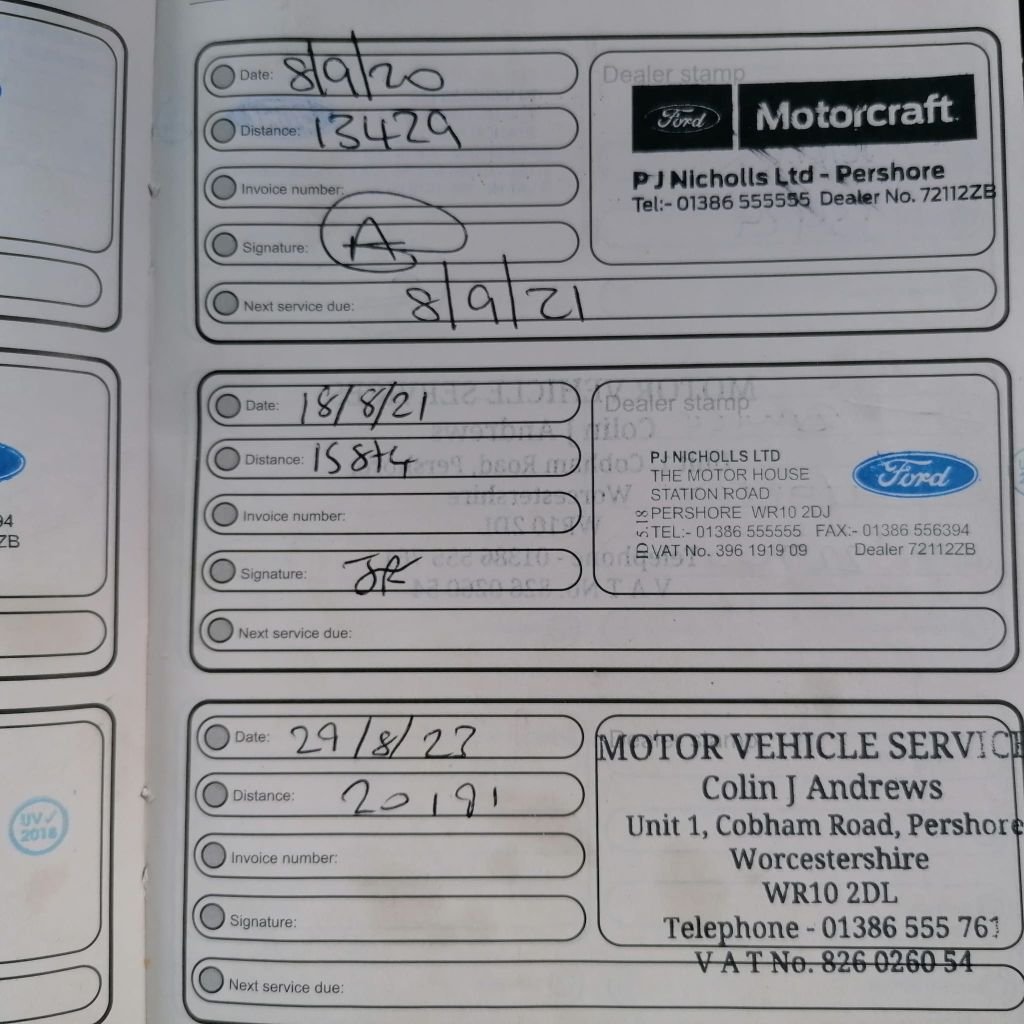 Date: 8/9/20
Distance: 13429
Invoice number:
Signature: A
Next service due: 8/9/21
Dealer stamp
Ford Motorcraft
P J Nicholls Ltd - Pershore
Tel:- 01386 555555 Dealer No. 72112ZB
Date: 18/8/21
Distance: 15874
Invoice number:
Signature:
Next service due:
Dealer stamp
PJ NICHOLLS LTD
THE MOTOR HOUSE
STATION ROAD
PERSHORE WR10 2DJ
TEL:- 01386 555555 FAX:- 01386 556394
VAT No. 396 1919 09 Dealer 72112ZB
ID 5.18
Ford
Date: 29/8/23
Distance: 20191
Invoice number:
Signature:
Next service due:
MOTOR VEHICLE SERVICE
Colin J Andrews
Unit 1, Cobham Road, Pershore
Worcestershire
WR10 2DL
Telephone - 01386 555 761
V A T No. 826 0260 54
94
ZB
UV✓
2018